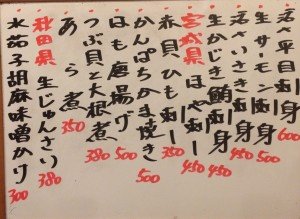 活平目刺身 600
生サーモン刺身 500
活さいき刺身 450
生かじき鮪刺身 450
宮城県 ほや刺 450
赤貝ひも刺 350
かんぱちかま焼き 500
はも唐揚げ 500
つぶ貝と大根煮 380
あら煮 350
秋田県 生じゅんさい 380
水茄子胡麻味噌かけ 300